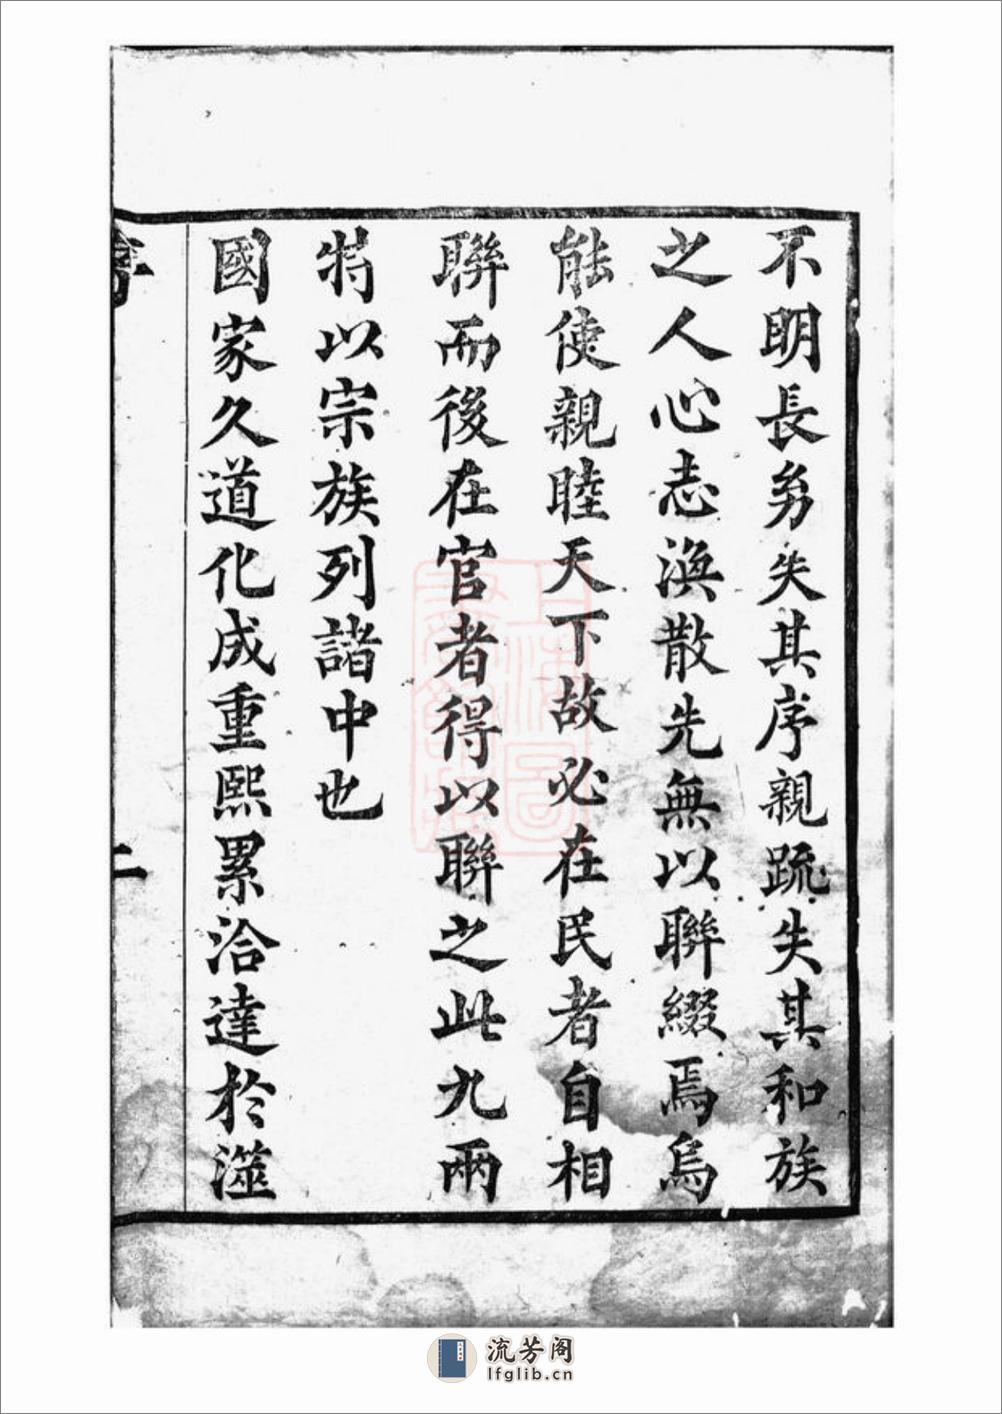 不明長㓜失其序親疏失其和族
之人心志渙散先無以聯綴焉烏
能使親睦天下故必在民者自相
聯而後在官者得以聯之此九兩
特以宗族列諸中也
國家久道化成重熙累洽達於澨
二
流芳阁
lfglib.cn